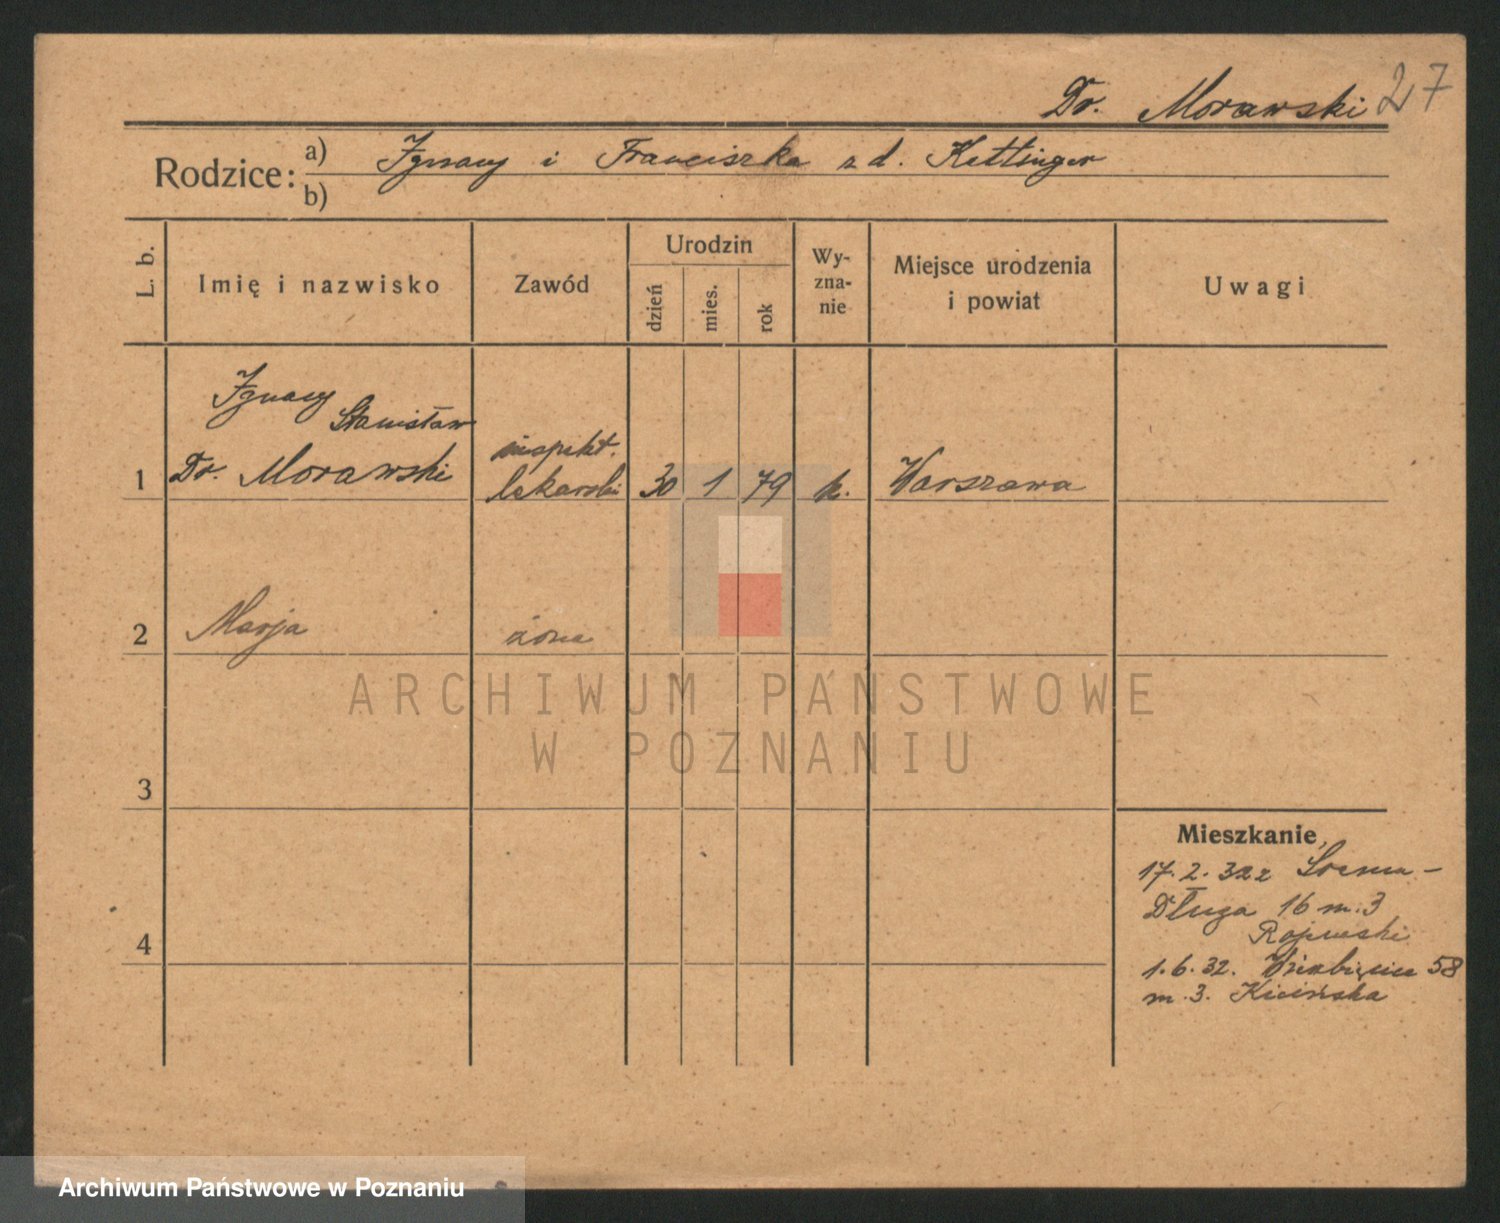 Dr. Morawski 27
Rodzice: a) Ignacy i Franciszka z d. Kettinger
b)
L. b.
Imię i nazwisko
Zawód
Urodzin
dzień
mies.
rok
Wy-
zna-
nie
Miejsce urodzenia
i powiat
Uwagi
Ignacy
Stanisław
1 Dr. Morawski
inspekt.
lekarski
30 1 79 k. Warszawa
2 Marja żona
3
4
Mieszkanie
17.2.32 z Śremu -
Długa 16 m. 3
Rajewski
1.6.32. Wierzbięcice 58
m. 3. Kicińska
ARCHIWUM PAŃSTWOWE
W POZNANIU
Archiwum Państwowe w Poznaniu